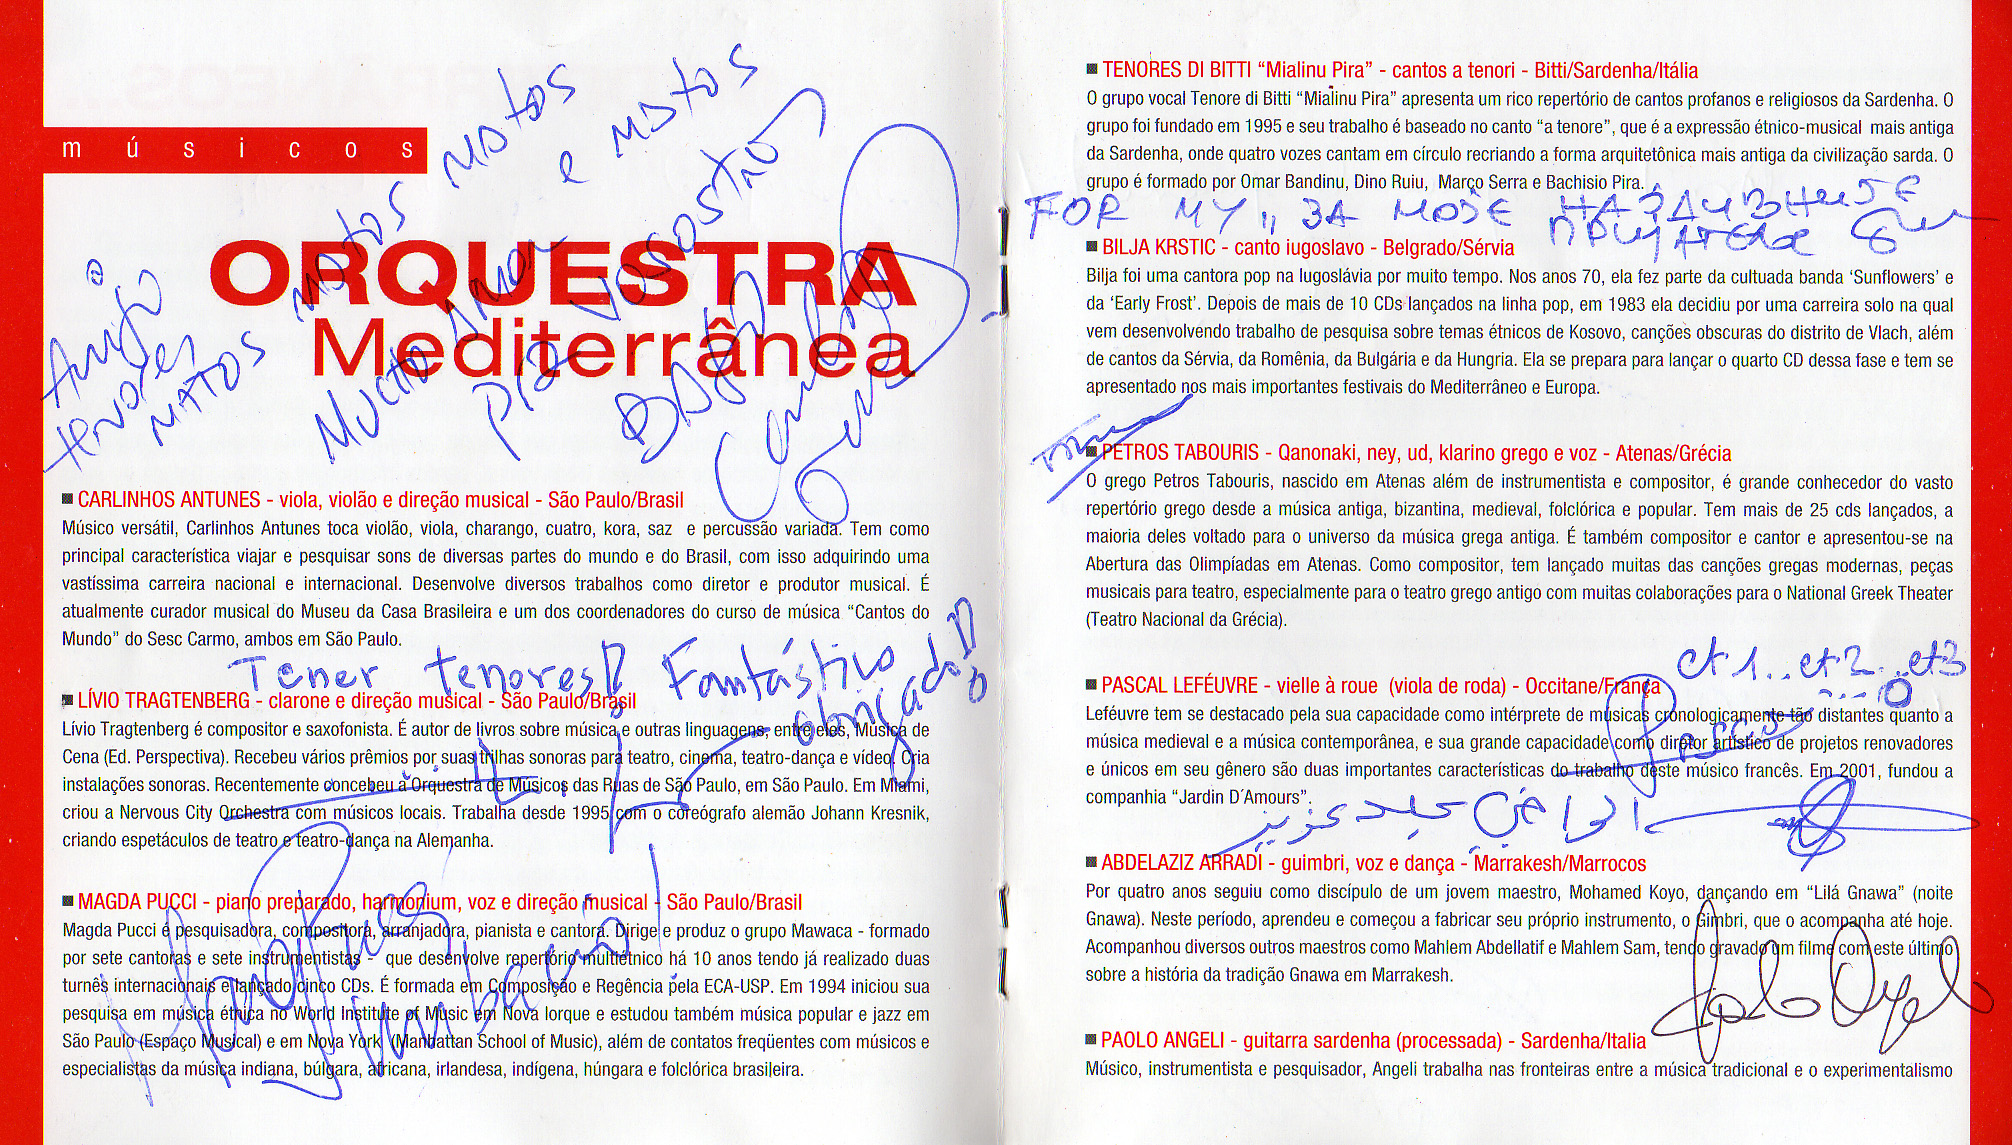 músicos
ORQUESTRA
Mediterrânea
Muito
e
CARLINHOS ANTUNES - viola, violão e direção musical - São Paulo/Brasil
Músico versátil, Carlinhos Antunes toca violão, viola, charango, cuatro, kora, saz e percussão variada. Tem como
principal característica viajar e pesquisar sons de diversas partes do mundo e do Brasil, com isso adquirindo uma
vastíssima carreira nacional e internacional. Desenvolve diversos trabalhos como diretor e produtor musical. É
atualmente curador musical do Museu da Casa Brasileira e um dos coordenadores do curso de música “Cantos do
Mundo” do Sesc Carmo, ambos em São Paulo.
Tener tenores!! Fantástico
obrigado!!
LÍVIO TRAGTENBERG - clarone e direção musical - São Paulo/Brasil
Lívio Tragtenberg é compositor e saxofonista. É autor de livros sobre música e outras linguagens, entre eles, Música de
Cena (Ed. Perspectiva). Recebeu vários prêmios por suas trilhas sonoras para teatro, cinema, teatro-dança e vídeo. Cria
instalações sonoras. Recentemente concebeu a Orquestra de Músicos das Ruas de São Paulo, em São Paulo. Em Miami,
criou a Nervous City Orchestra com músicos locais. Trabalha desde 1995 com o coreógrafo alemão Johann Kresnik,
criando espetáculos de teatro e teatro-dança na Alemanha.
MAGDA PUCCI - piano preparado, harmonium, voz e direção musical - São Paulo/Brasil
Magda Pucci é pesquisadora, compositora, arranjadora, pianista e cantora. Dirige e produz o grupo Mawaca - formado
por sete cantoras e sete instrumentistas - que desenvolve repertório multiétnico há 10 anos tendo já realizado duas
turnês internacionais e lançado cinco CDs. É formada em Composição e Regência pela ECA-USP. Em 1994 iniciou sua
pesquisa em música étnica no World Institute of Music em Nova Iorque e estudou também música popular e jazz em
São Paulo (Espaço Musical) e em Nova York (Manhattan School of Music), além de contatos freqüentes com músicos e
especialistas da música indiana, búlgara, africana, irlandesa, indígena, húngara e folclórica brasileira.
TENORES DI BITTI “Mialinu Pira” - cantos a tenori - Bitti/Sardenha/Itália
O grupo vocal Tenore di Bitti “Mialinu Pira” apresenta um rico repertório de cantos profanos e religiosos da Sardenha. O
grupo foi fundado em 1995 e seu trabalho é baseado no canto “a tenore”, que é a expressão étnico-musical mais antiga
da Sardenha, onde quatro vozes cantam em círculo recriando a forma arquitetônica mais antiga da civilização sarda. O
grupo é formado por Omar Bandinu, Dino Ruiu, Março Serra e Bachisio Pira.
FOR MY „ ЗА МОЈЕ
BILJA KRSTIC - canto iugoslavo - Belgrado/Sérvia
Bilja foi uma cantora pop na Iugoslávia por muito tempo. Nos anos 70, ela fez parte da cultuada banda ‘Sunflowers’ e
da ‘Early Frost’. Depois de mais de 10 CDs lançados na linha pop, em 1983 ela decidiu por uma carreira solo na qual
vem desenvolvendo trabalho de pesquisa sobre temas étnicos de Kosovo, canções obscuras do distrito de Vlach, além
de cantos da Sérvia, da Romênia, da Bulgária e da Hungria. Ela se prepara para lançar o quarto CD dessa fase e tem se
apresentado nos mais importantes festivais do Mediterrâneo e Europa.
PETROS TABOURIS - Qanonaki, ney, ud, klarino grego e voz - Atenas/Grécia
O grego Petros Tabouris, nascido em Atenas além de instrumentista e compositor, é grande conhecedor do vasto
repertório grego desde a música antiga, bizantina, medieval, folclórica e popular. Tem mais de 25 cds lançados, a
maioria deles voltado para o universo da música grega antiga. É também compositor e cantor e apresentou-se na
Abertura das Olimpíadas em Atenas. Como compositor, tem lançado muitas das canções gregas modernas, peças
musicais para teatro, especialmente para o teatro grego antigo com muitas colaborações para o National Greek Theater
(Teatro Nacional da Grécia).
et 1.. et 2... et 3
PASCAL LEFÉUVRE - vielle à roue (viola de roda) - Occitane/França
Leféuvre tem se destacado pela sua capacidade como intérprete de músicas cronologicamente tão distantes quanto a
música medieval e a música contemporânea, e sua grande capacidade como diretor artístico de projetos renovadores
e únicos em seu gênero são duas importantes características do trabalho deste músico francês. Em 2001, fundou a
companhia “Jardin D´Amours”.
ABDELAZIZ ARRADI - guimbri, voz e dança - Marrakesh/Marrocos
Por quatro anos seguiu como discípulo de um jovem maestro, Mohamed Koyo, dançando em “Lilá Gnawa” (noite
Gnawa). Neste período, aprendeu e começou a fabricar seu próprio instrumento, o Gimbri, que o acompanha até hoje.
Acompanhou diversos outros maestros como Mahlem Abdellatif e Mahlem Sam, tendo gravado um filme com este último
sobre a história da tradição Gnawa em Marrakesh.
PAOLO ANGELI - guitarra sardenha (processada) - Sardenha/Italia
Músico, instrumentista e pesquisador, Angeli trabalha nas fronteiras entre a música tradicional e o experimentalismo